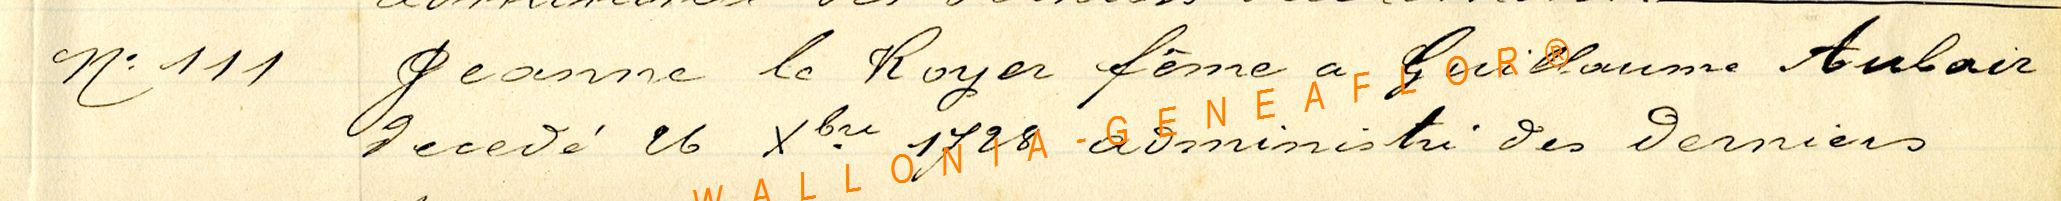 Nº 111 Jeanne le Royer fême a Guillaume Aubair
decedé 26 Xbre 1728 administri des derniers
WALLONIA-GENEAFLOR®